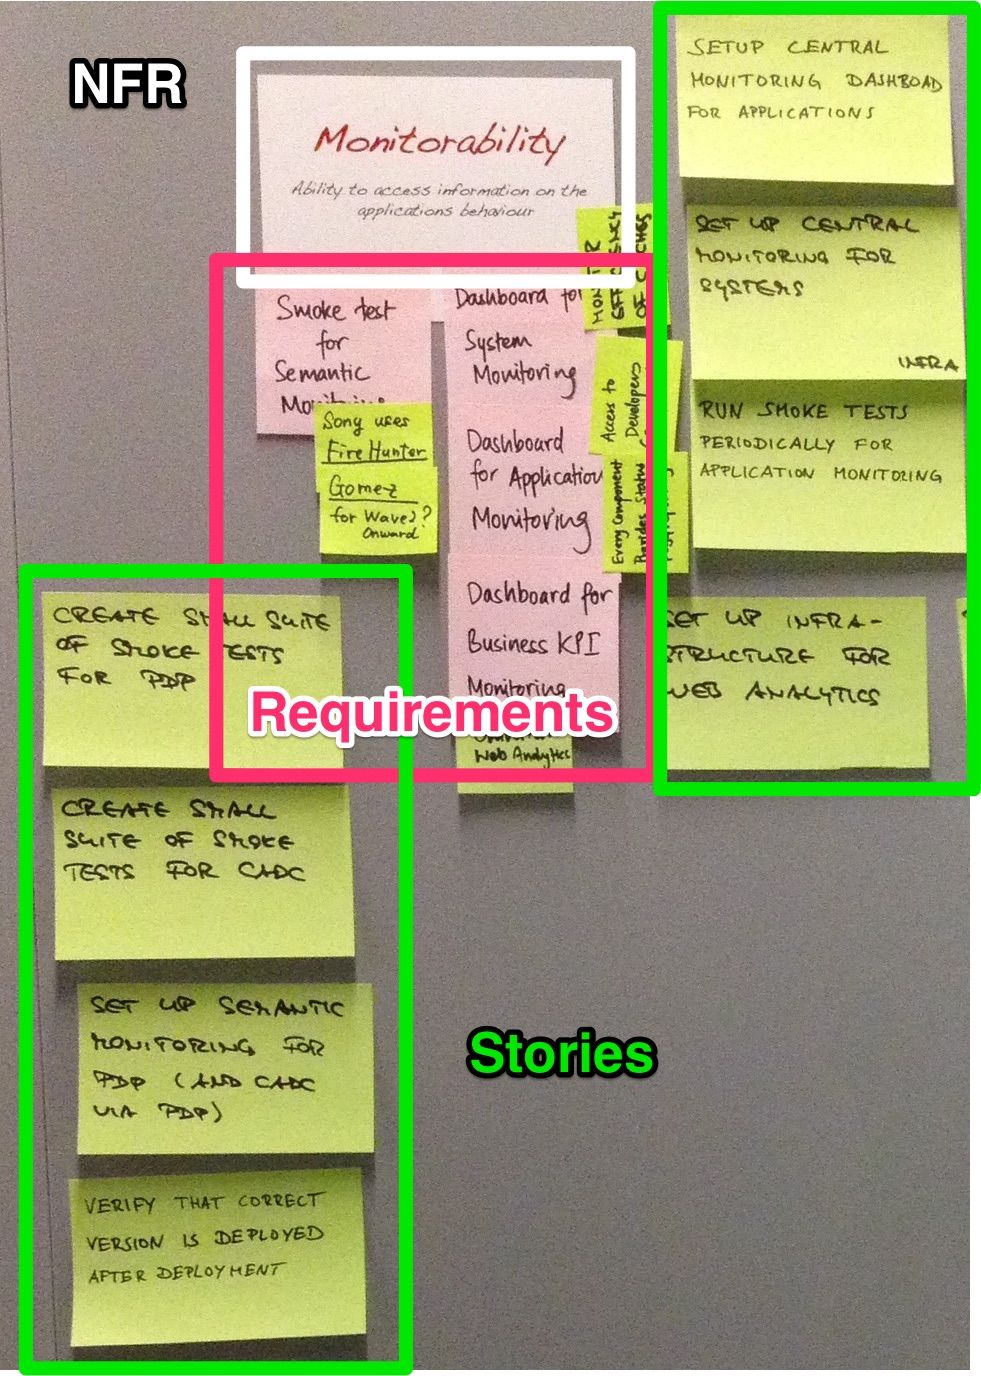 NFR
Monitorability
Ability to access information on the
applications behaviour
Smoke test
for
Semantic
Song uses
Fire Hunter
Gomez
for Wave2?
Onward
Dashboard for
System
Monitoring
Dashboard
for Application
Monitoring
Dashboard for
Business KPI
Monitoring
Web Analytics
MONITOR
EFFICIENCY
OF CACHES
Access to
Developers
Every Component
Status
Requirements
SETUP CENTRAL
MONITORING DASHBOAD
FOR APPLICATIONS
SET UP CENTRAL
MONITORING FOR
SYSTEMS
INFRA
RUN SMOKE TESTS
PERIODICALLY FOR
APPLICATION MONITORING
SET UP INFRA-
STRUCTURE FOR
WEB ANALYTICS
CREATE SMALL SUITE
OF SMOKE TESTS
FOR PDP
CREATE SMALL
SUITE OF SMOKE
TESTS FOR CADC
SET UP SEMANTIC
MONITORING FOR
PDP (AND CADC
VIA PDP)
VERIFY THAT CORRECT
VERSION IS DEPLOYED
AFTER DEPLOYMENT
Stories